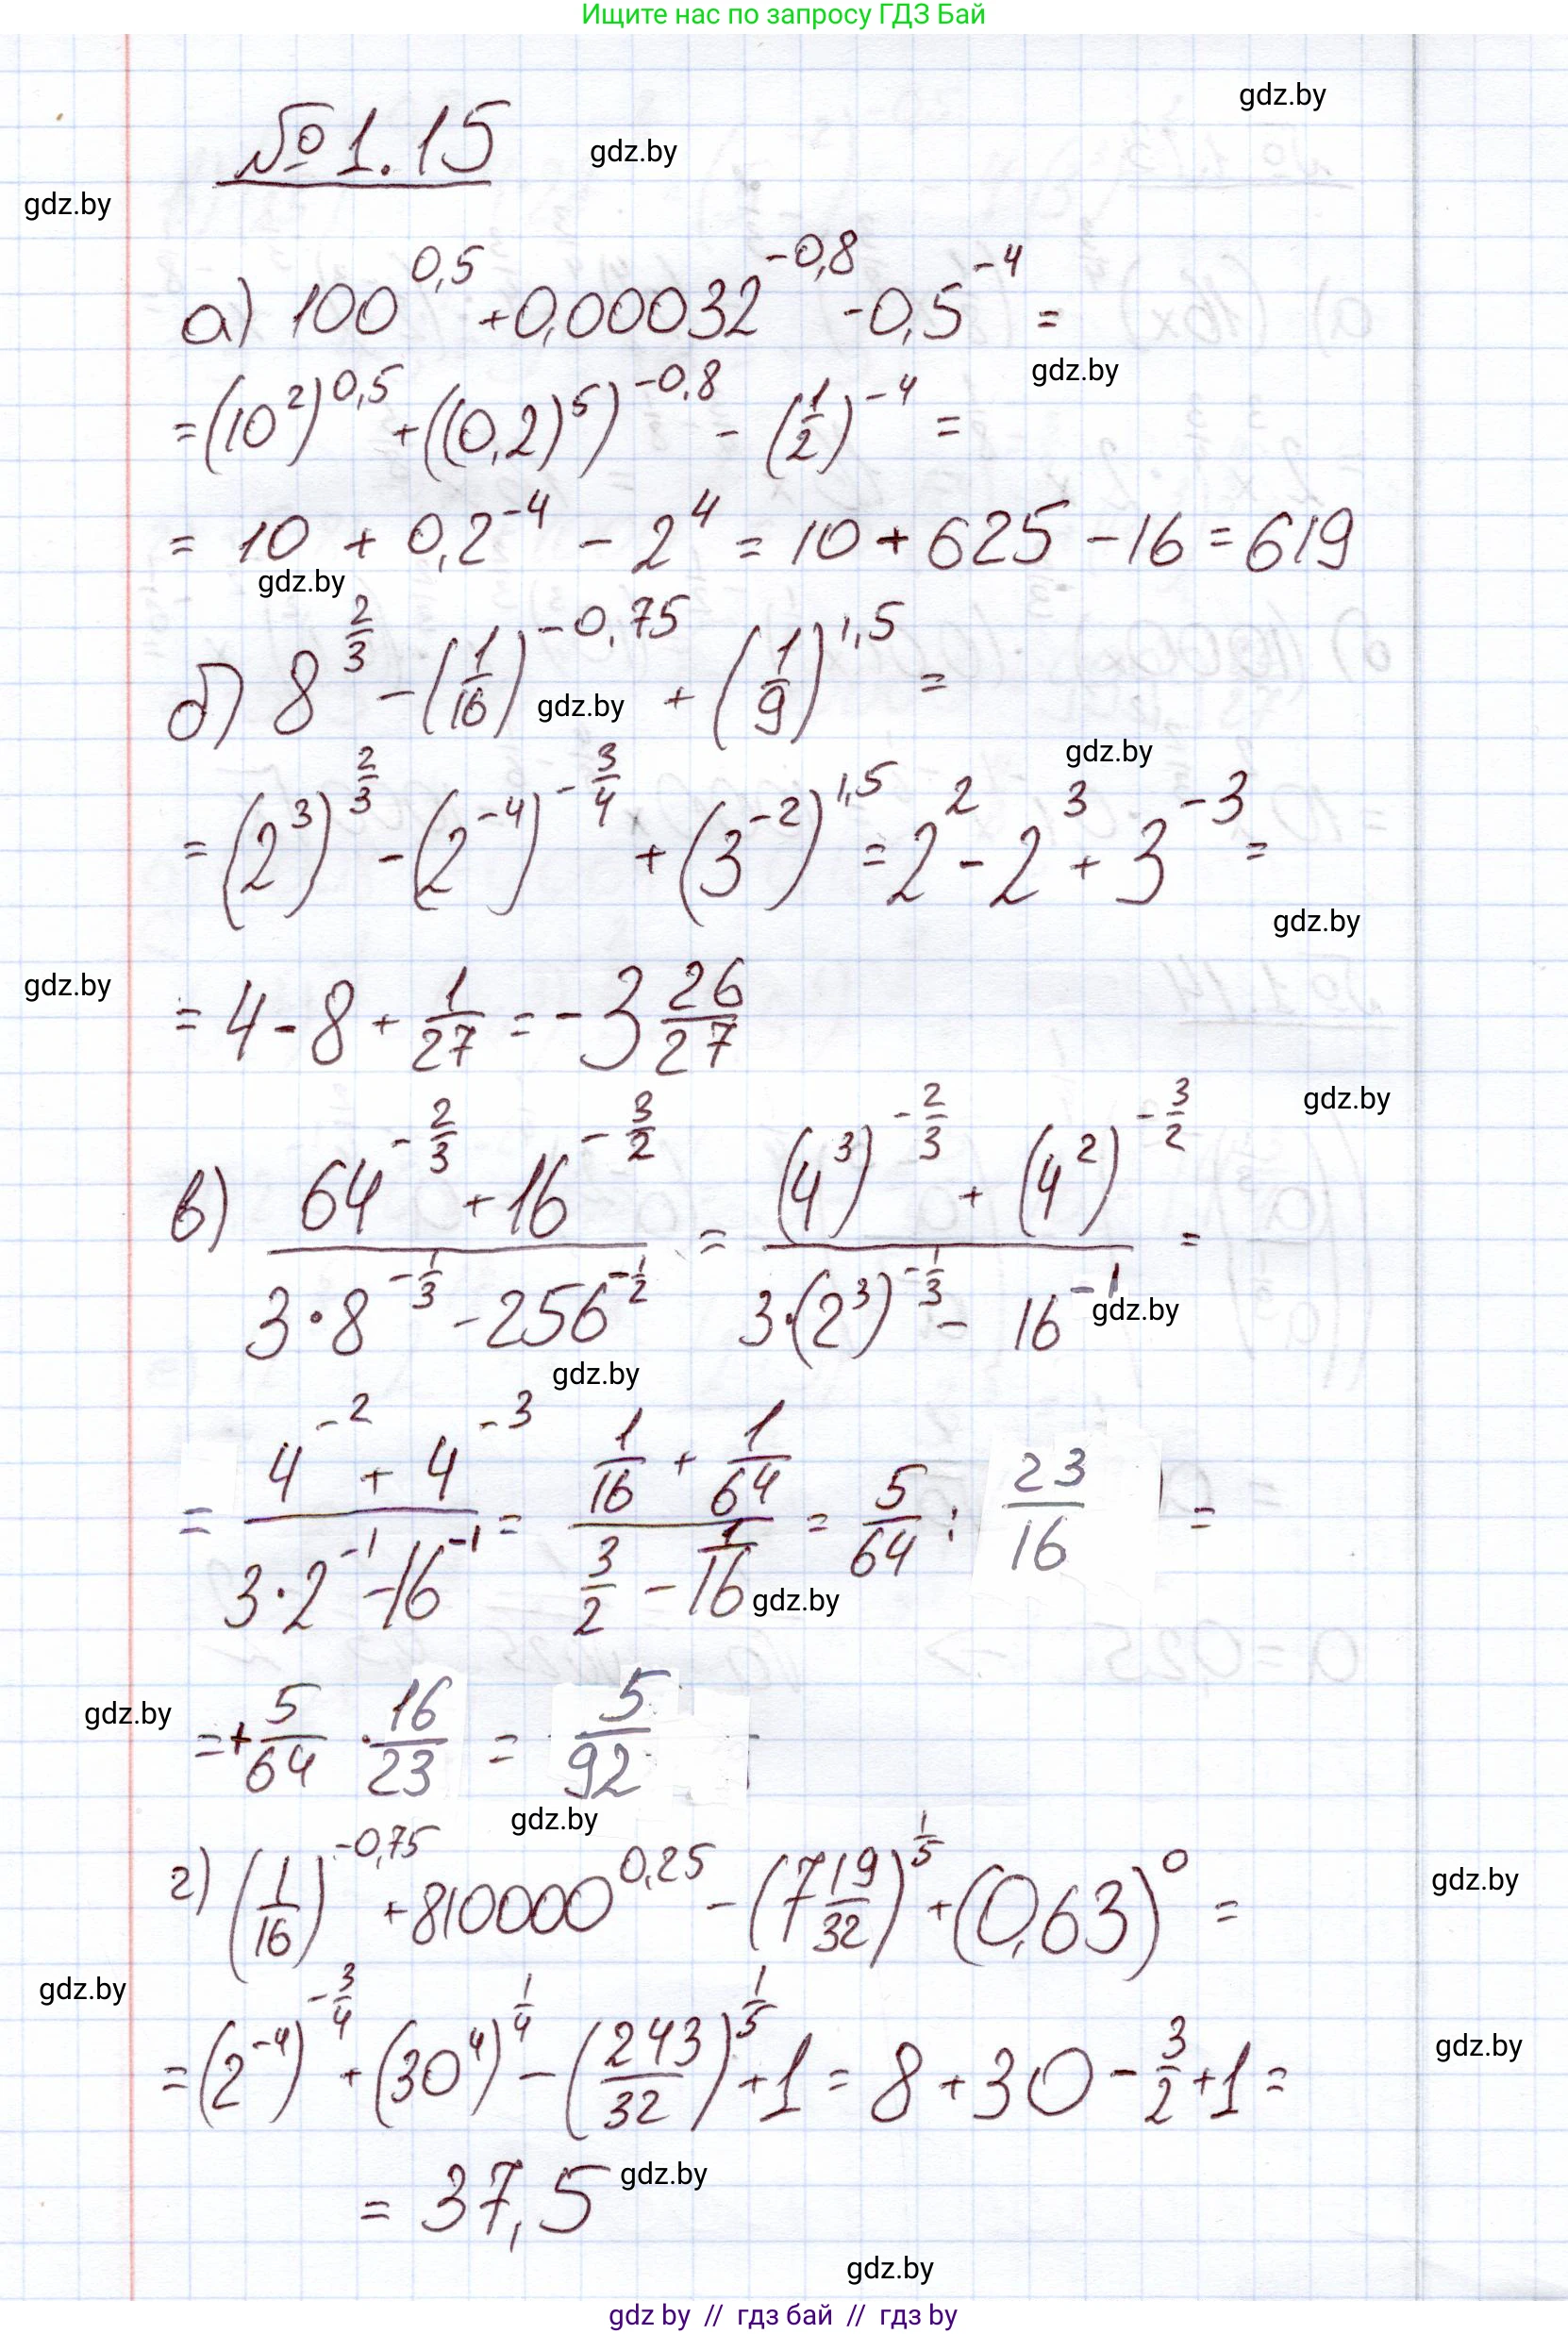 Ищите нас по запросу ГДЗ Бай
gdz.by
№ 1.15 gdz.by
gdz.by
а) 100^0,5 + 0,00032^-0,8 - 0,5^-4 =
gdz.by
= (10^2)^0,5 + ((0,2)^5)^-0,8 - (1/2)^-4 =
= 10 + 0,2^-4 - 2^4 = 10 + 625 - 16 = 619
gdz.by
б) 8^(2/3) - (1/16)^-0,75 + (1/9)^1,5 =
gdz.by
gdz.by
= (2^3)^(2/3) - (2^-4)^(-3/4) + (3^-2)^1,5 = 2^2 - 2^3 + 3^-3 =
gdz.by
gdz.by
= 4 - 8 + 1/27 = -3 26/27
gdz.by
в) (64^(-2/3) + 16^(-3/2)) / (3·8^(-1/3) - 256^(-1/2)) = ((4^3)^(-2/3) + (4^2)^(-3/2)) / (3·(2^3)^(-1/3) - 16^-1) =
gdz.by
gdz.by
= (4^-2 + 4^-3) / (3·2^-1 - 16^-1) = (1/16 + 1/64) / (3/2 - 1/16) = 5/64 : 23/16 =
gdz.by
gdz.by
= + 5/64 · 16/23 = 5/92
gdz.by
г) (1/16)^-0,75 + 810000^0,25 - (7 19/32)^(1/5) + (0,63)^0 =
gdz.by
gdz.by
= (2^-4)^(-3/4) + (30^4)^(1/4) - (243/32)^(1/5) + 1 = 8 + 30 - 3/2 + 1 =
gdz.by
= 37,5 gdz.by
gdz.by
gdz by // гдз бай // гдз by